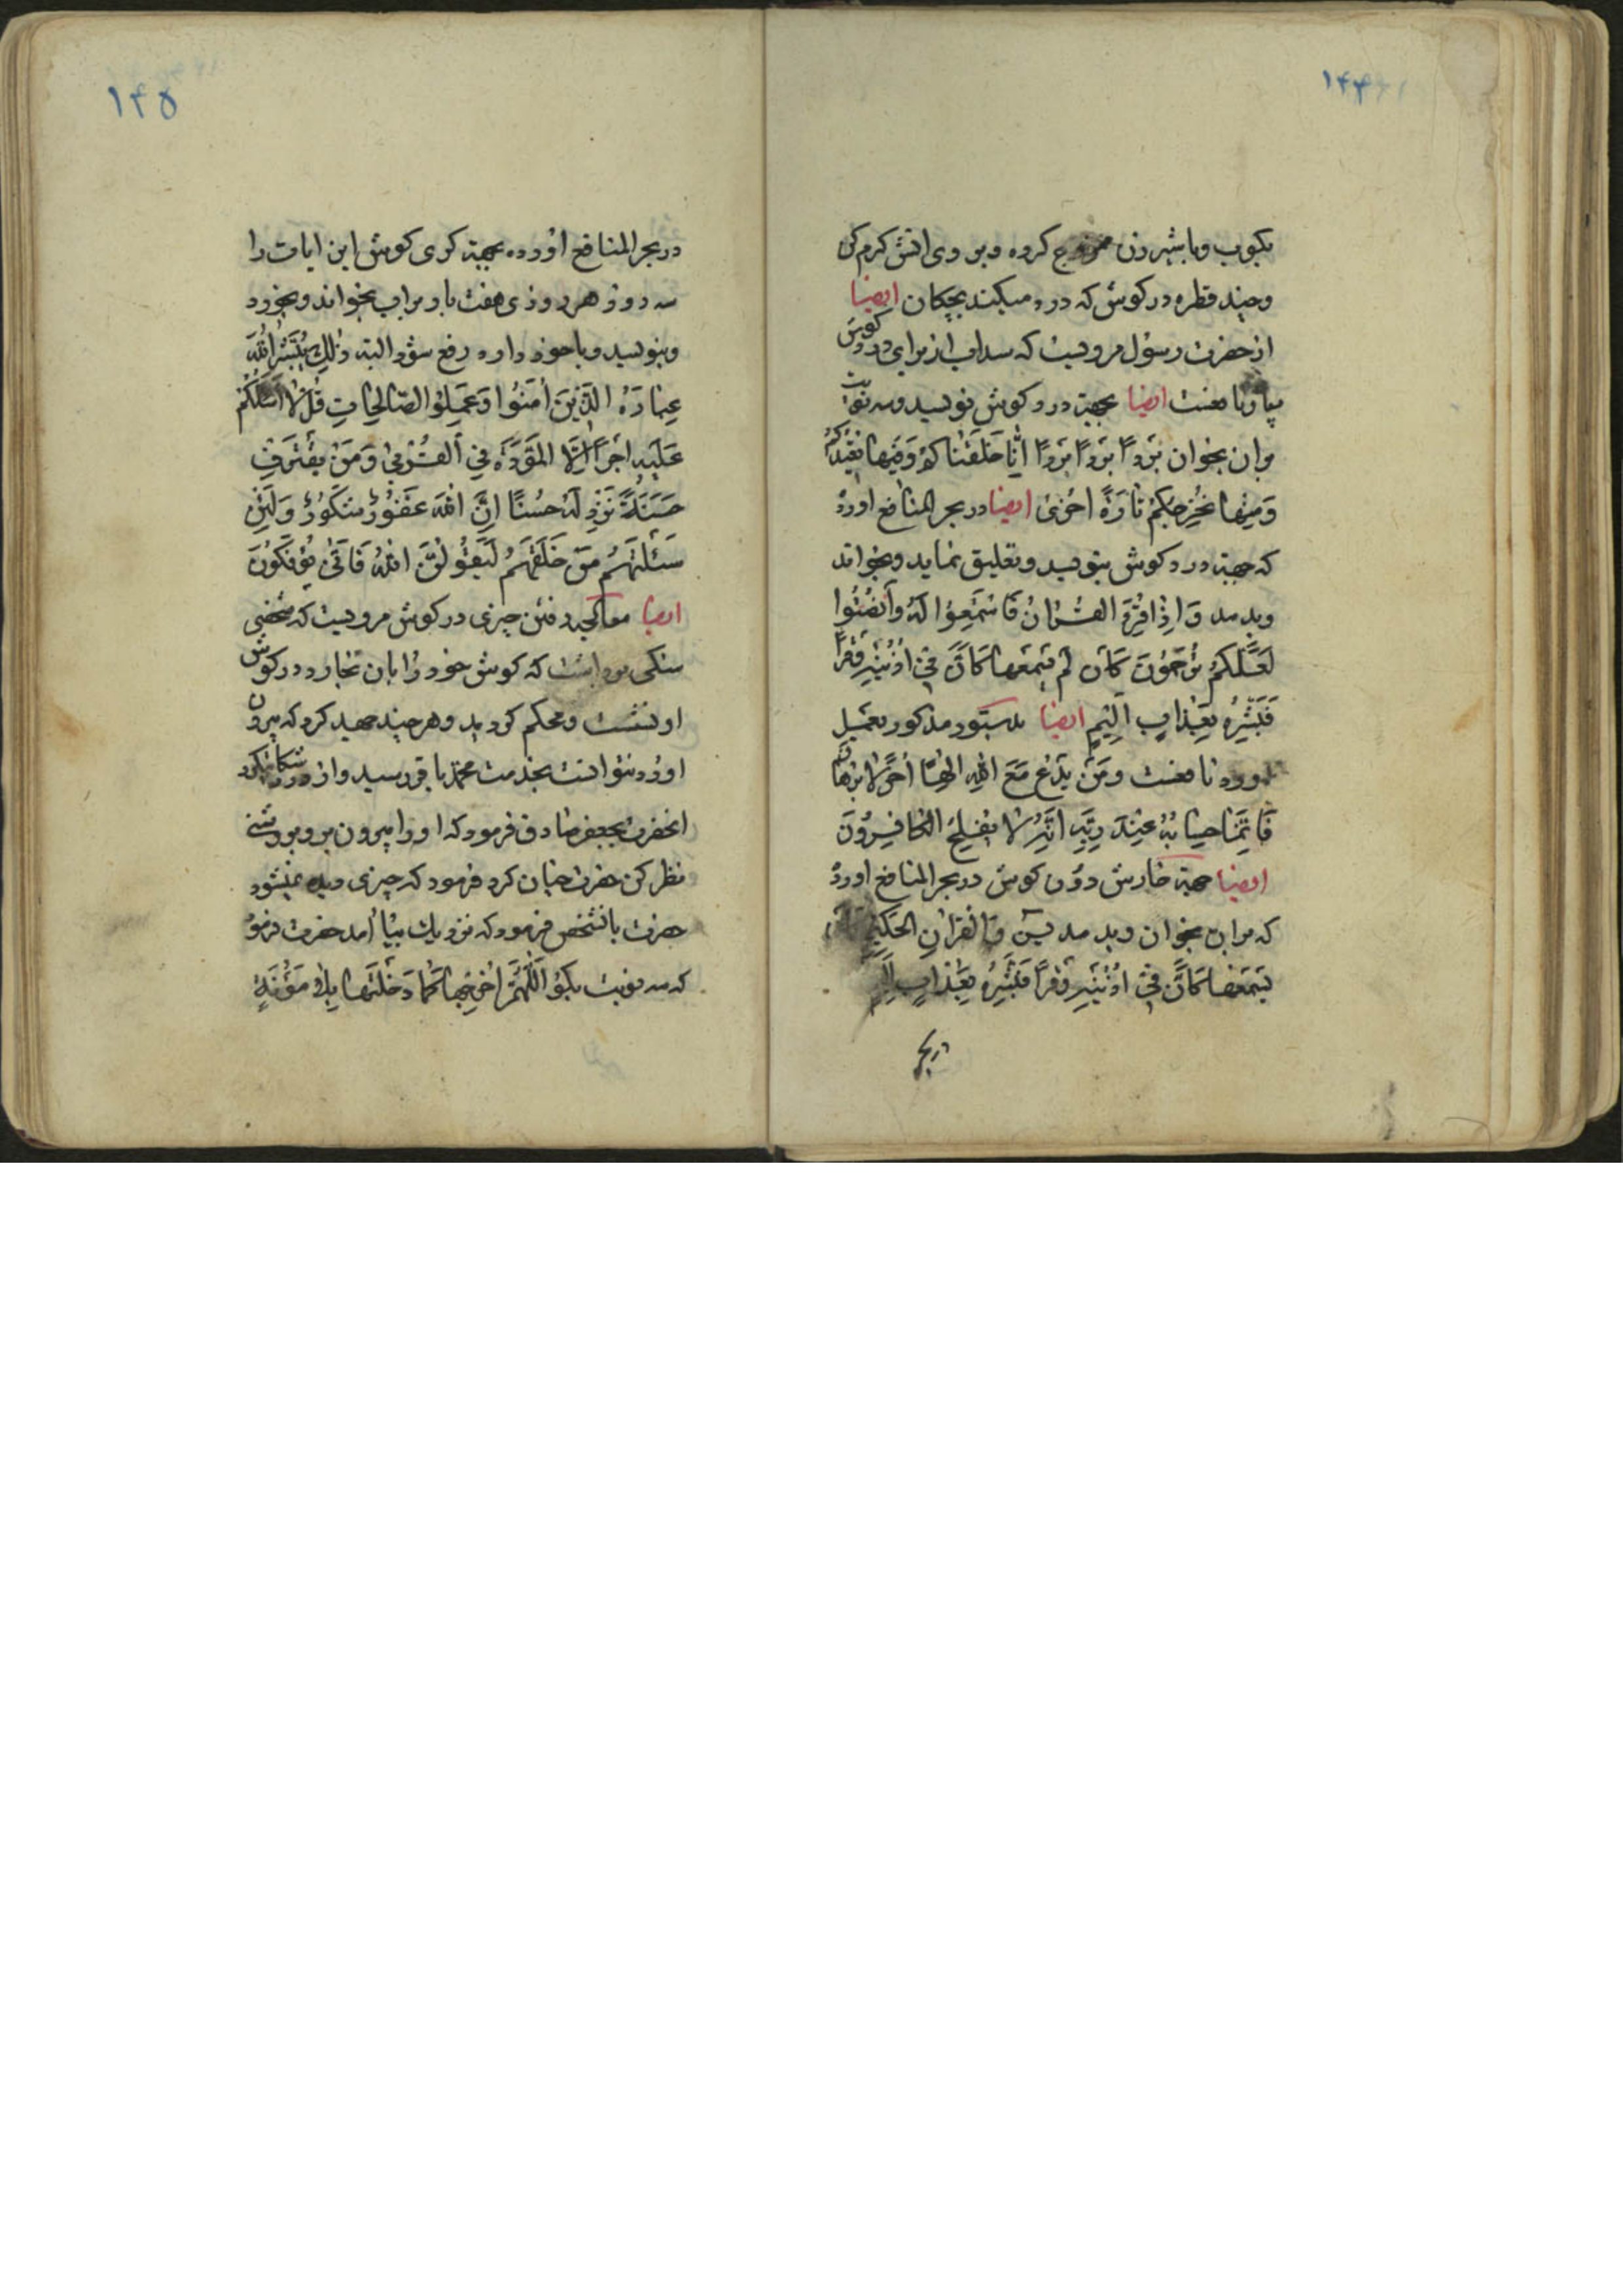 ۱۴۴
بکوب و با شیر زن ممزوج کرده و بر روی اتش کرم کن
و چند قطره در کوش که درد میکند بچکان ایضا
از حضرت رسول مرویست که سداب از برای درد کوش
بسیار نافعست ایضا بجهة درد کوش نویسد و سه نوبت
بران بخوان بَرْدًا بَرْدًا بَرْدًا انّا خَلَقْناکُمْ وَفِیها نُعِیدُکُمْ
وَمِنْها نُخْرِجُکُمْ تارَةً اُخْریٰ ایضا در بحر المنافع اورده
که جهة درد کوش بنویسد و تعلیق نماید و بخواند
و بدمد وَاِذا قُرِءَ القُرْانُ فَاسْتَمِعُوا لَهُ وَاَنْصِتُوا
لَعَلَّکُمْ تُرْحَمُونَ کَاَن لَم یَسْمَعْها کَاَنَّ فی اُذُنَیْهِ وَقْرًا
فَبَشِّرْهُ بِعَذابٍ اَلِیمٍ ایضا بدستور مذکور بعمل
اورد نافعست وَمَنْ یَدْعُ مَعَ اللهِ اِلٰهًا اُخَرَ لا بُرْهانَ
فَاِنَّما حِسابُهُ عِنْدَ رَبِّهِ اِنَّهُ لا یُفْلِحُ الکافِرُونَ
ایضا جهة خارش درون کوش در بحر المنافع اورده
که بر اب بخوان و بدمد یس وَالْقُرْانِ الحَکِیمِ
یَسْمَعْها کَاَنَّ فی اُذُنَیْهِ وَقْرًا فَبَشِّرْهُ بِعَذابٍ اَلِیمٍ
در بحر
۱۴۵
در بحر المنافع اورده بجهة کری کوش این ایات را
سه روز هر روزی هفت بار بر اب بخواند و بخورد
و بنویسد و با خود دارد رفع شود البته ذٰلِکَ یُبَشِّرُ اللهُ
عِبادَهُ الَّذِینَ اٰمَنُوا وَعَمِلُوا الصّالِحاتِ قُلْ لا اَسْئَلُکُمْ
عَلَیْهِ اَجْرًا اِلَّا المَوَدَّةَ فی القُرْبیٰ وَمَنْ یَقْتَرِفْ
حَسَنَةً نَزِدْ لَهُ حُسْنًا اِنَّ اللهَ غَفُورٌ شَکُورٌ وَلَئِنْ
سَئَلْتَهُمْ مَنْ خَلَقَهُمْ لَیَقُولُنَّ اللهُ فَاَنّیٰ یُؤْفَکُونَ
ایضا معالجه رفتن چیزی در کوش مرویست که شخصی
سنکی برداشت که کوش خود را بان بخارد در کوش
او نشست و محکم کردید و هر چند جهد کرد که بیرون
اورد نتوانست بخدمت محمد باقر رسید و از درد شکایت کرد
انحضرت بجعفر صادق فرمود که او را بیرون بر و بروشنی
نظر کن حضرت چنان کرد فرمود که چیزی دیده نمیشود
حضرت بانشخص فرمود که نزدیک بیا امد حضرت فرمود
که سه نوبت بکو اَللّٰهُمَّ اَخْرِجْها کَما دَخَلْتَها بِلا مَؤُنَةٍ